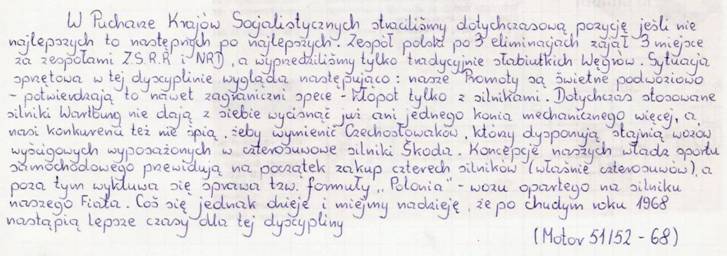 W Pucharze Krajów Socjalistycznych straciliśmy dotychczasową pozycję jeśli nie
najlepszych to następnych po najlepszych. Zespół polski po 3 eliminacjach zajął 3 miejsce
za zespołami Z.S.R.R i NRD, a wyprzedziliśmy tylko tradycyjnie słabiutkich Węgrów. Sytuacja
sprzętowa w tej dyscyplinie wygląda następująco: nasze Promoty są świetne podwoziowo
- potwierdzają to nawet zagraniczni spece - kłopot tylko z silnikami. Dotychczas stosowane
silniki Wartburg nie dają z siebie wycisnąć już ani jednego konia mechanicznego więcej, a
nasi konkurenci też nie śpią, żeby wymienić Czechosłowaków, którzy dysponują stajnią wozów
wyścigowych wyposażonych w czterosuwowe silniki Škoda. Koncepcje naszych władz sportu
samochodowego przewidują na początek zakup czterech silników (właśnie czterosuwów), a
poza tym wykluwa się sprawa tzw. formuły "Polonia" - wozu opartego na silniku
naszego Fiata. Coś się jednak dzieje i miejmy nadzieję, że po chudym roku 1968
nastąpią lepsze czasy dla tej dyscypliny
(Motor 51/52 - 68)